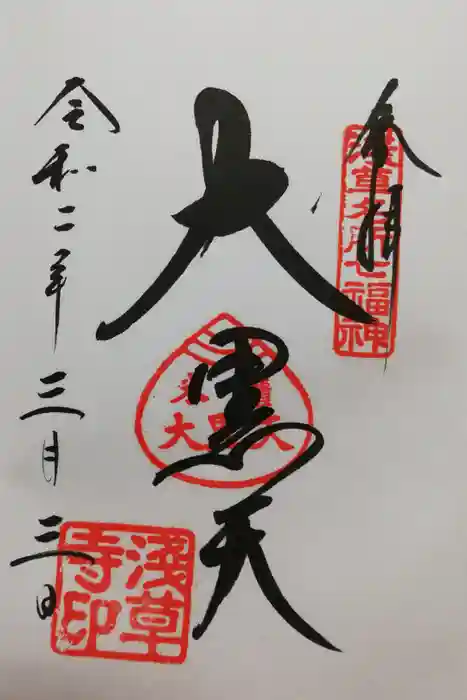 奉拝
浅草名所七福神
大黒天
米 大黒天
令和二年三月三日
浅草寺印